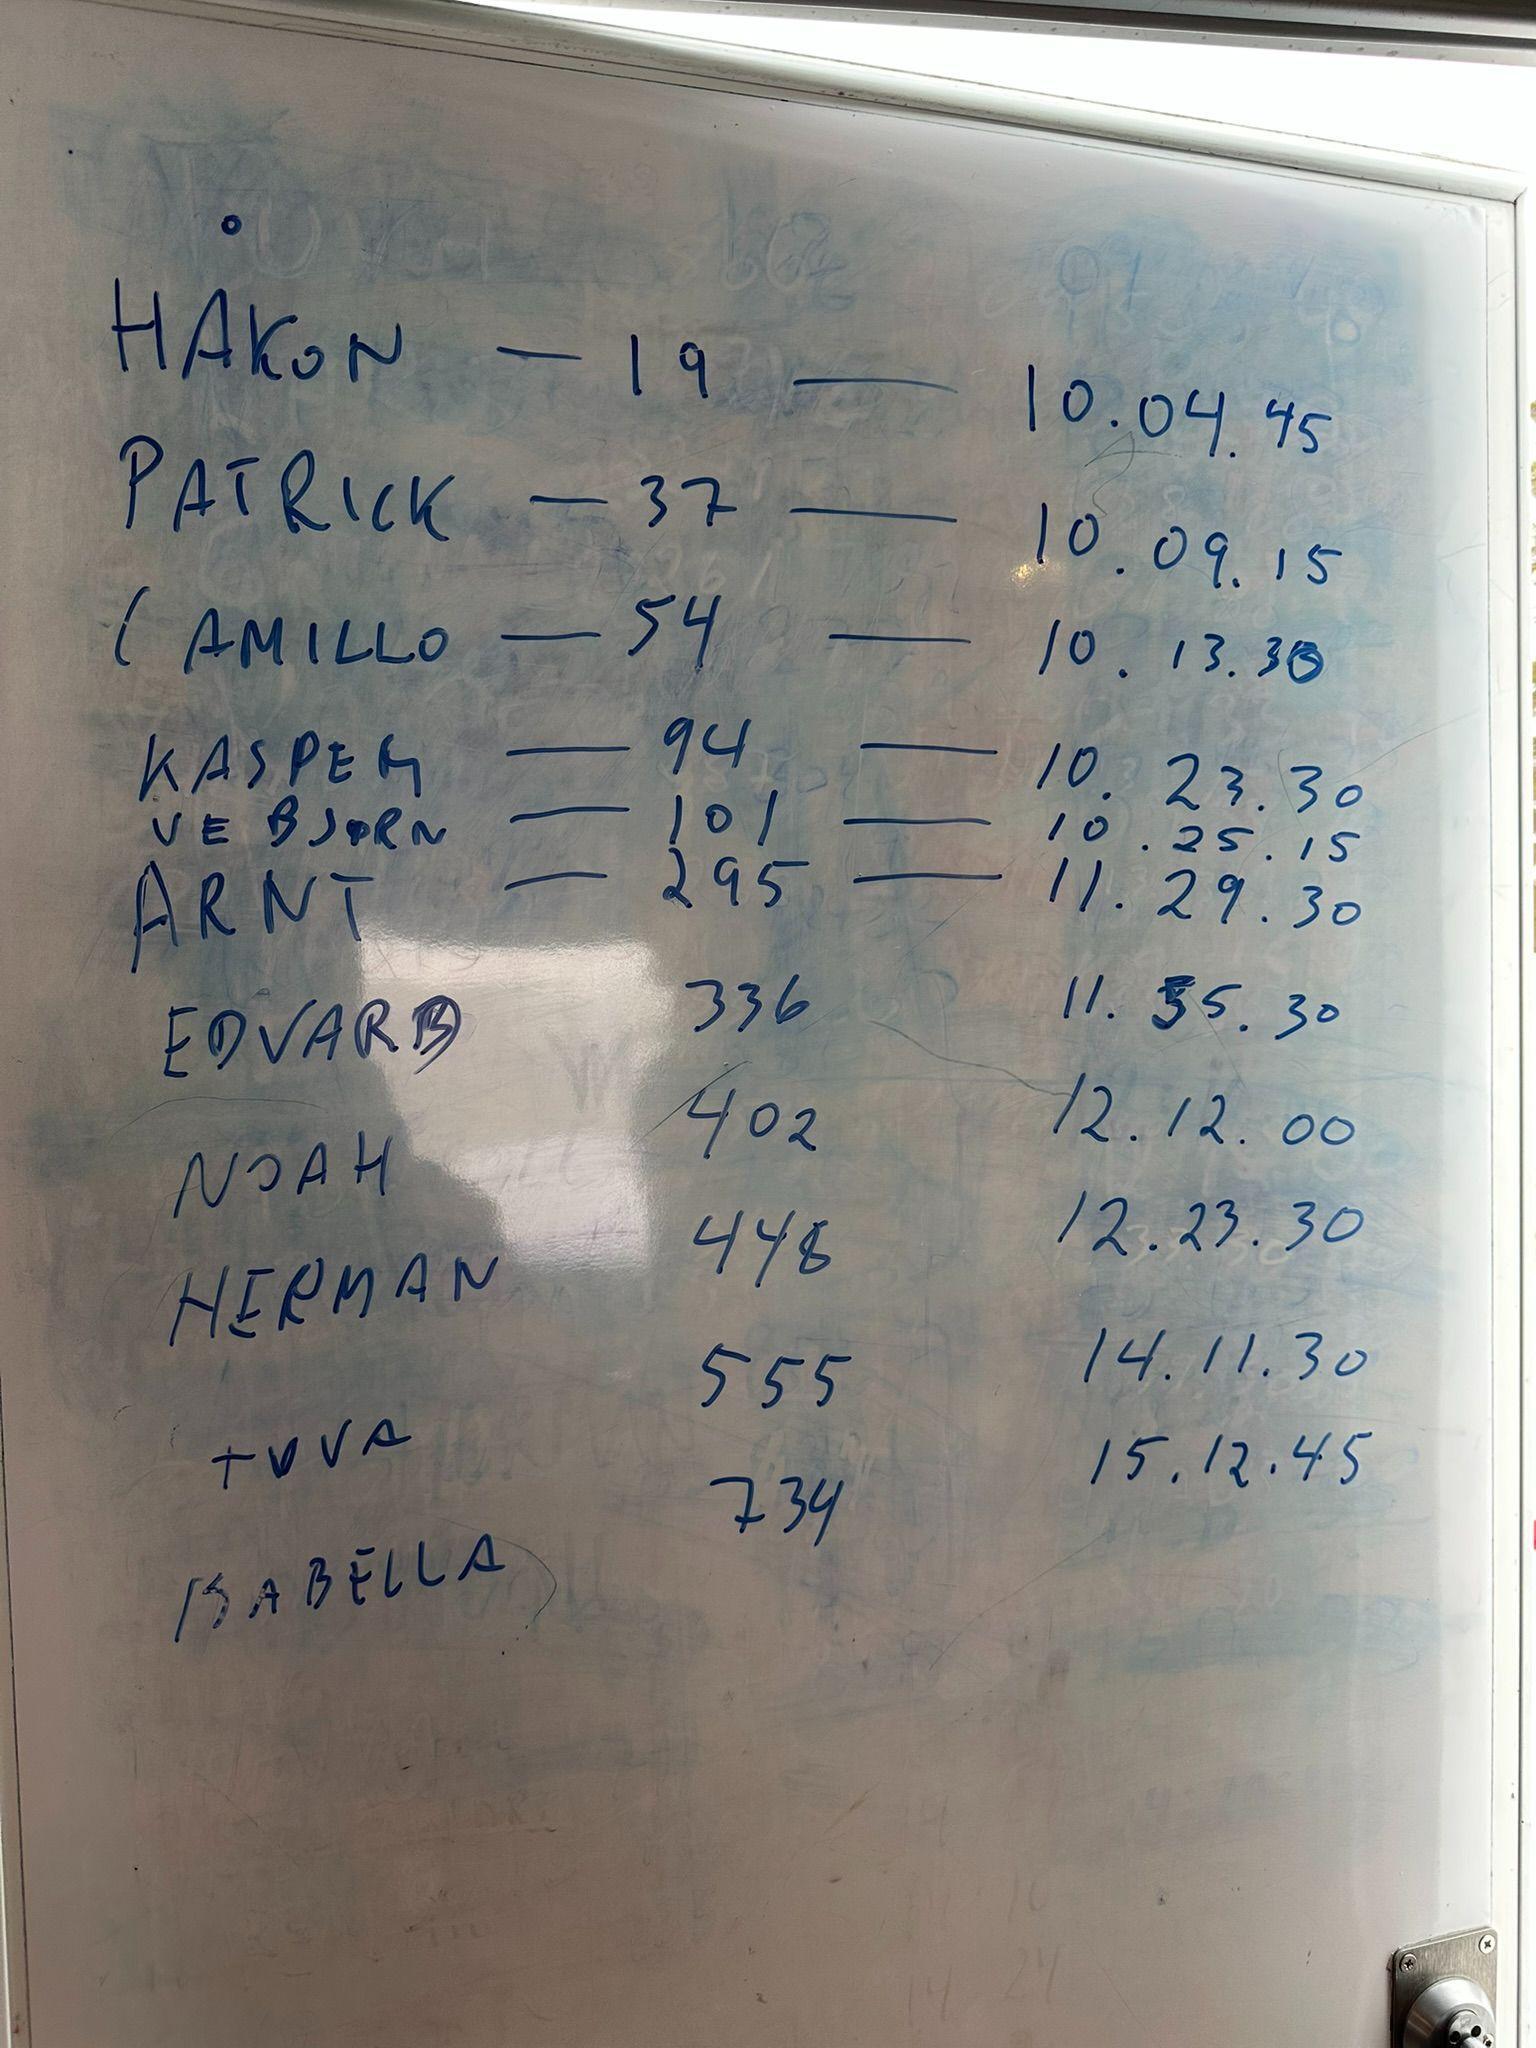 HÅKON — 19 — 10.04.45
PATRICK — 37 — 10.09.15
CAMILLO — 54 — 10.13.30
KASPER — 94 — 10.23.30
VEBJØRN — 101 — 10.25.15
ARNT — 295 — 11.29.30
EDVARD 336 11.35.30
NOAH 402 12.12.00
HERMAN 448 12.23.30
TUVA 555 14.11.30
ISABELLA 734 15.12.45